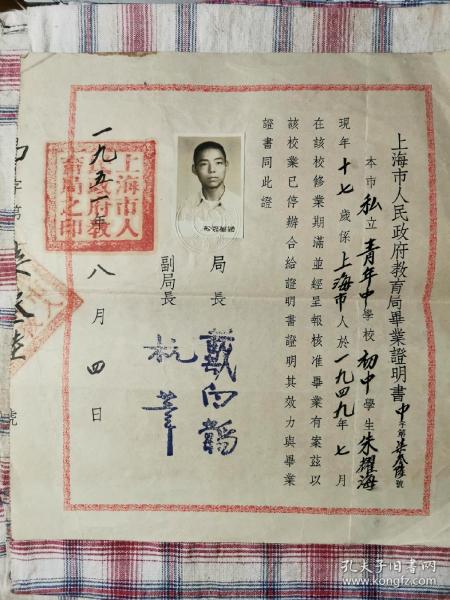 上海市人民政府教育局畢業證明書 中字第柒叁陸號
本市私立青年中學校初中學生朱耀海
現年十七歲係上海市人於一九四九年七月
在該校修業期滿並經呈報核准畢業有案茲以
該校業已停辦合給證明書證明其效力與畢業
證書同此證
局長 戴白韜
副局長 杭葦
一九五一年八月四日
上海市人民政府教育局之印
字第
號
孔夫子旧书网
www.kongfz.com